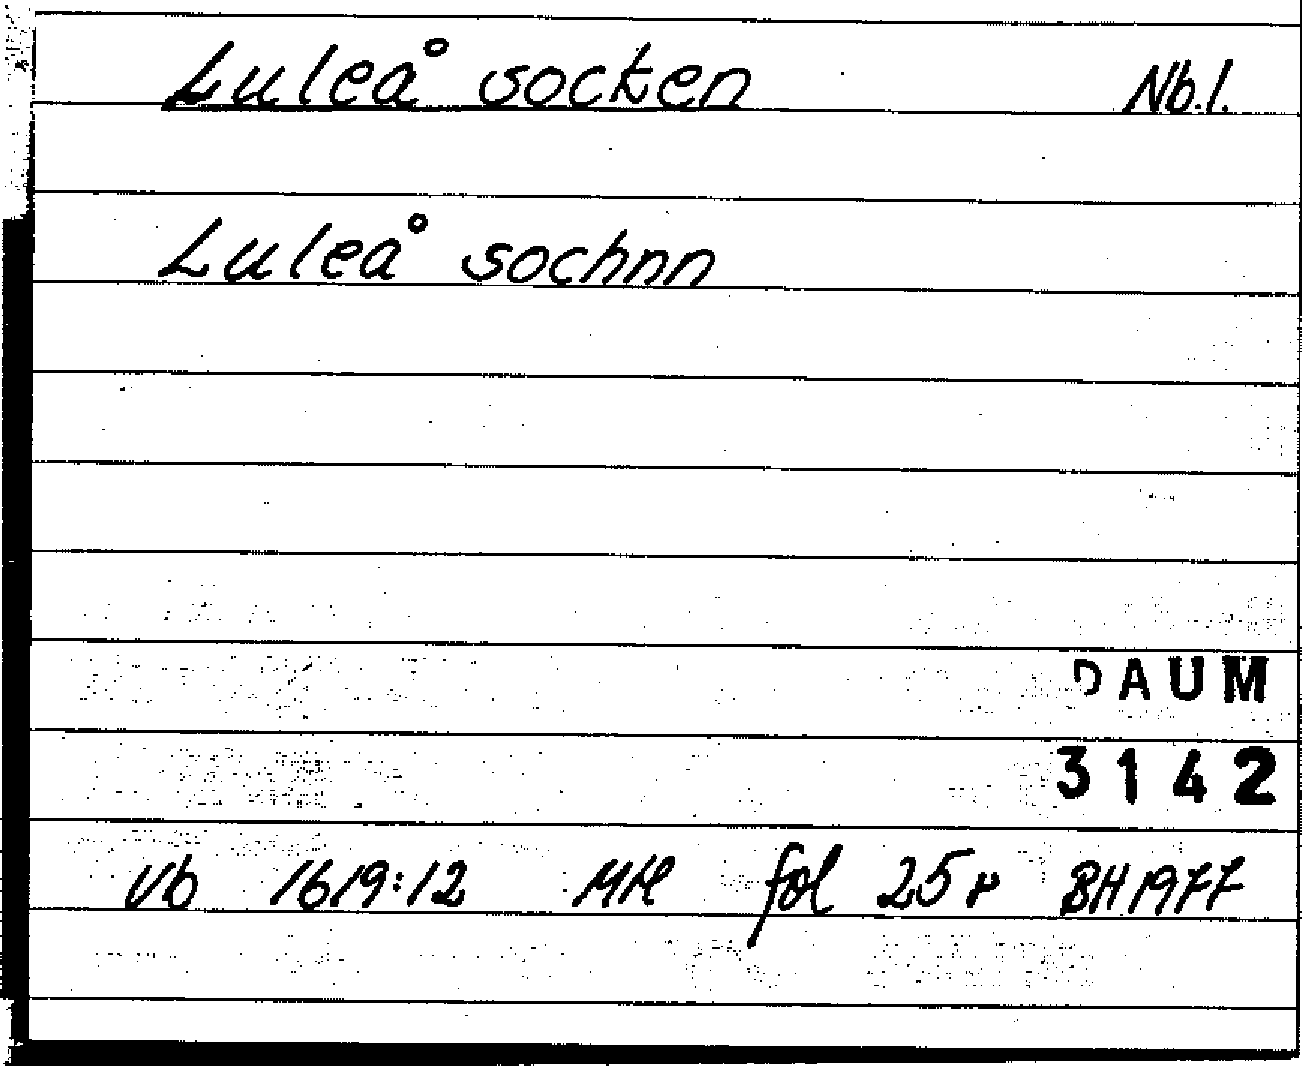 Luleå socken Nb.l.
Luleå sochnn
DAUM
3142
Vb 1619:12 MH fol 25r BH1977